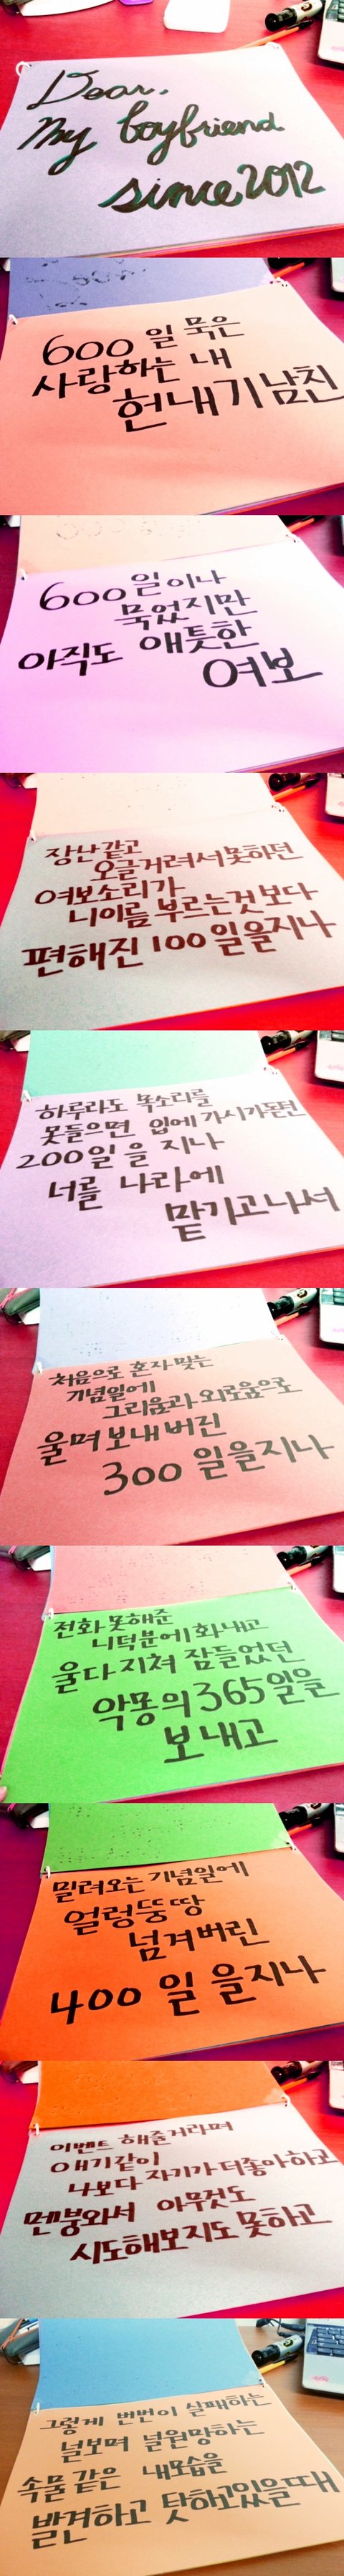 Dear.
My boyfriend
since 2012
600 일 묵은
사랑하는 내
헌내기남친
600일이나
묵었지만
아직도 애틋한
여보
장난같고
오글거려서못하던
여보소리가
니이름 부르는것보다
편해진 100일을지나
하루라도 목소리를
못들으면 입에 가시가돋던
200일 을 지나
너를 나라에
맡기고나서
처음으로 혼자 맞는
기념일에
그리움과 외로움으로
울며보내버린
300 일을지나
전화 못해준
니덕분에화내고
울다 지쳐 잠들었던
악몽의 365일을
보내고
밀려오는 기념일에
얼렁뚱땅
넘겨버린
400 일 을지나
이벤트 해줄거라며
얘기같이
나보다 자기가 더좋아하고
멘붕와서 아무것도
시도해보지도 못하고
그렇게 번번이 실패하는
널보며 널원망하는
속물같은 내모습을
발견하고 탓하고있을때